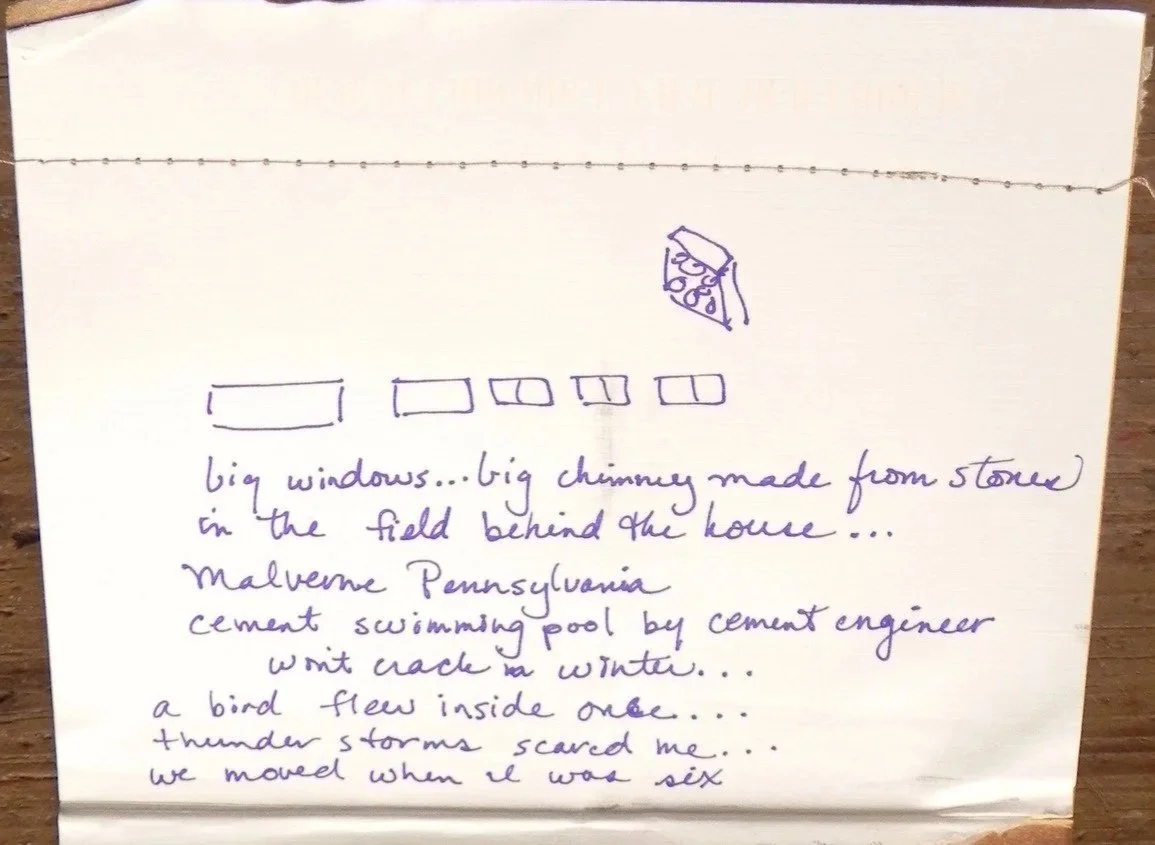 big windows...big chimney made from stones
in the field behind the house...
Malverne Pennsylvania
cement swimming pool by cement engineer
won't crack in winter...
a bird flew inside once....
thunder storms scared me...
we moved when I was six